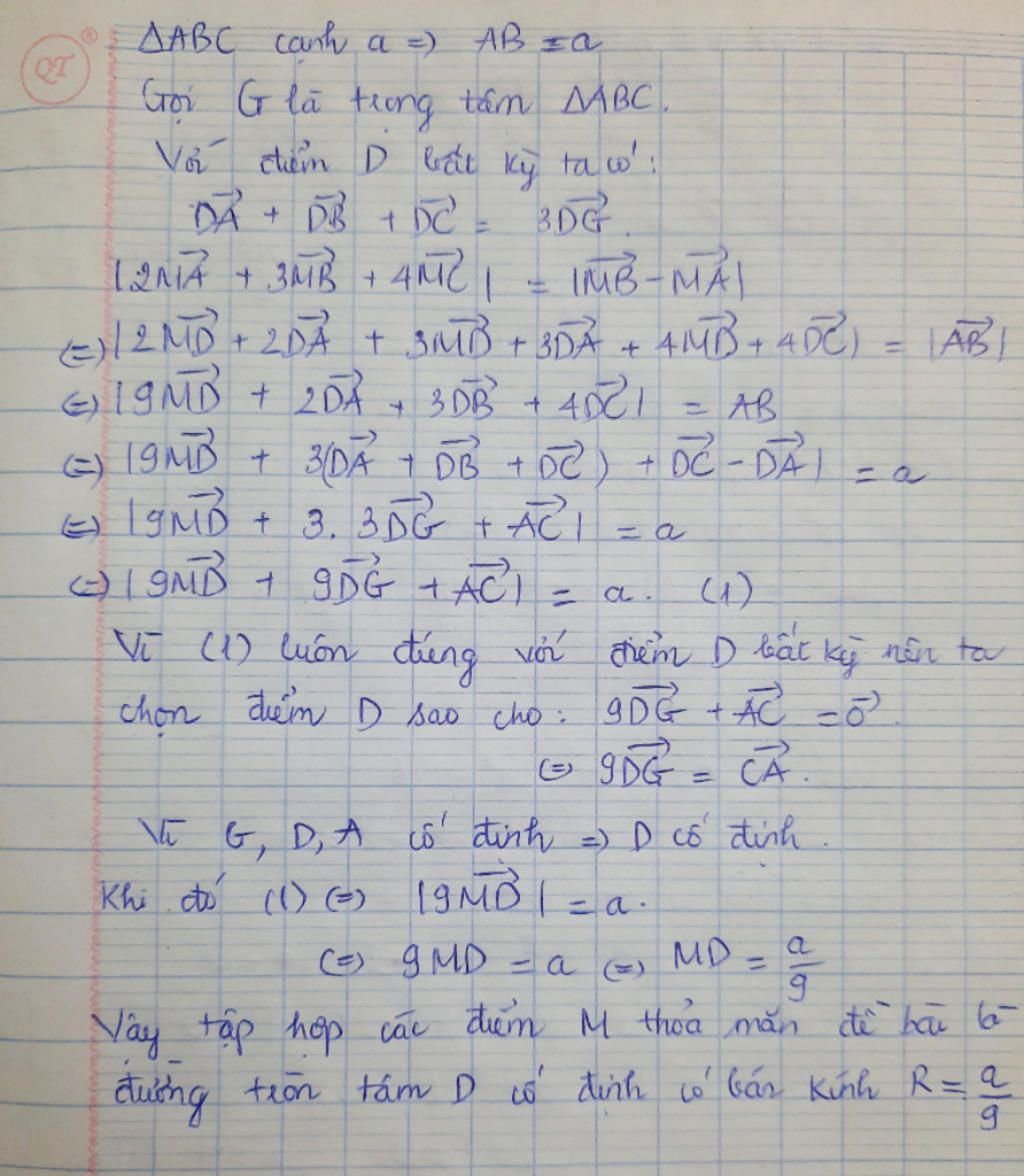 QT
®
ΔABC cạnh a => AB = a
Gọi G là trọng tâm ΔABC.
Với điểm D bất kỳ ta có:
$\overrightarrow{DA} + \overrightarrow{DB} + \overrightarrow{DC} = 3\overrightarrow{DG}.$
$|2\overrightarrow{MA} + 3\overrightarrow{MB} + 4\overrightarrow{MC}| = |\overrightarrow{MB} - \overrightarrow{MA}|$
(=) $|2\overrightarrow{MD} + 2\overrightarrow{DA} + 3\overrightarrow{MD} + 3\overrightarrow{DA} + 4\overrightarrow{MD} + 4\overrightarrow{DC}| = |\overrightarrow{AB}|$
(=) $|9\overrightarrow{MD} + 2\overrightarrow{DA} + 3\overrightarrow{DB} + 4\overrightarrow{DC}| = AB$
(=) $|9\overrightarrow{MD} + 3(\overrightarrow{DA} + \overrightarrow{DB} + \overrightarrow{DC}) + \overrightarrow{DC} - \overrightarrow{DA}| = a$
(=) $|9\overrightarrow{MD} + 3.3\overrightarrow{DG} + \overrightarrow{AC}| = a$
(=) $|9\overrightarrow{MD} + 9\overrightarrow{DG} + \overrightarrow{AC}| = a.$ (1)
Vì (1) luôn đúng với điểm D bất kỳ nên ta
chọn điểm D sao cho: $9\overrightarrow{DG} + \overrightarrow{AC} = \vec{0}.$
(=) $9\overrightarrow{DG} = \overrightarrow{CA}.$
Vì G, D, A cố định => D cố định.
Khi đó (1) (=) $|9\overrightarrow{MD}| = a.$
(=) 9MD = a (=) MD = $\frac{a}{9}$
Vậy tập hợp các điểm M thỏa mãn đề bài là
đường tròn tâm D cố định có bán kính R = $\frac{a}{9}$